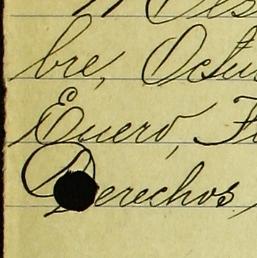 bre, Octu
Enero, F
Derechos